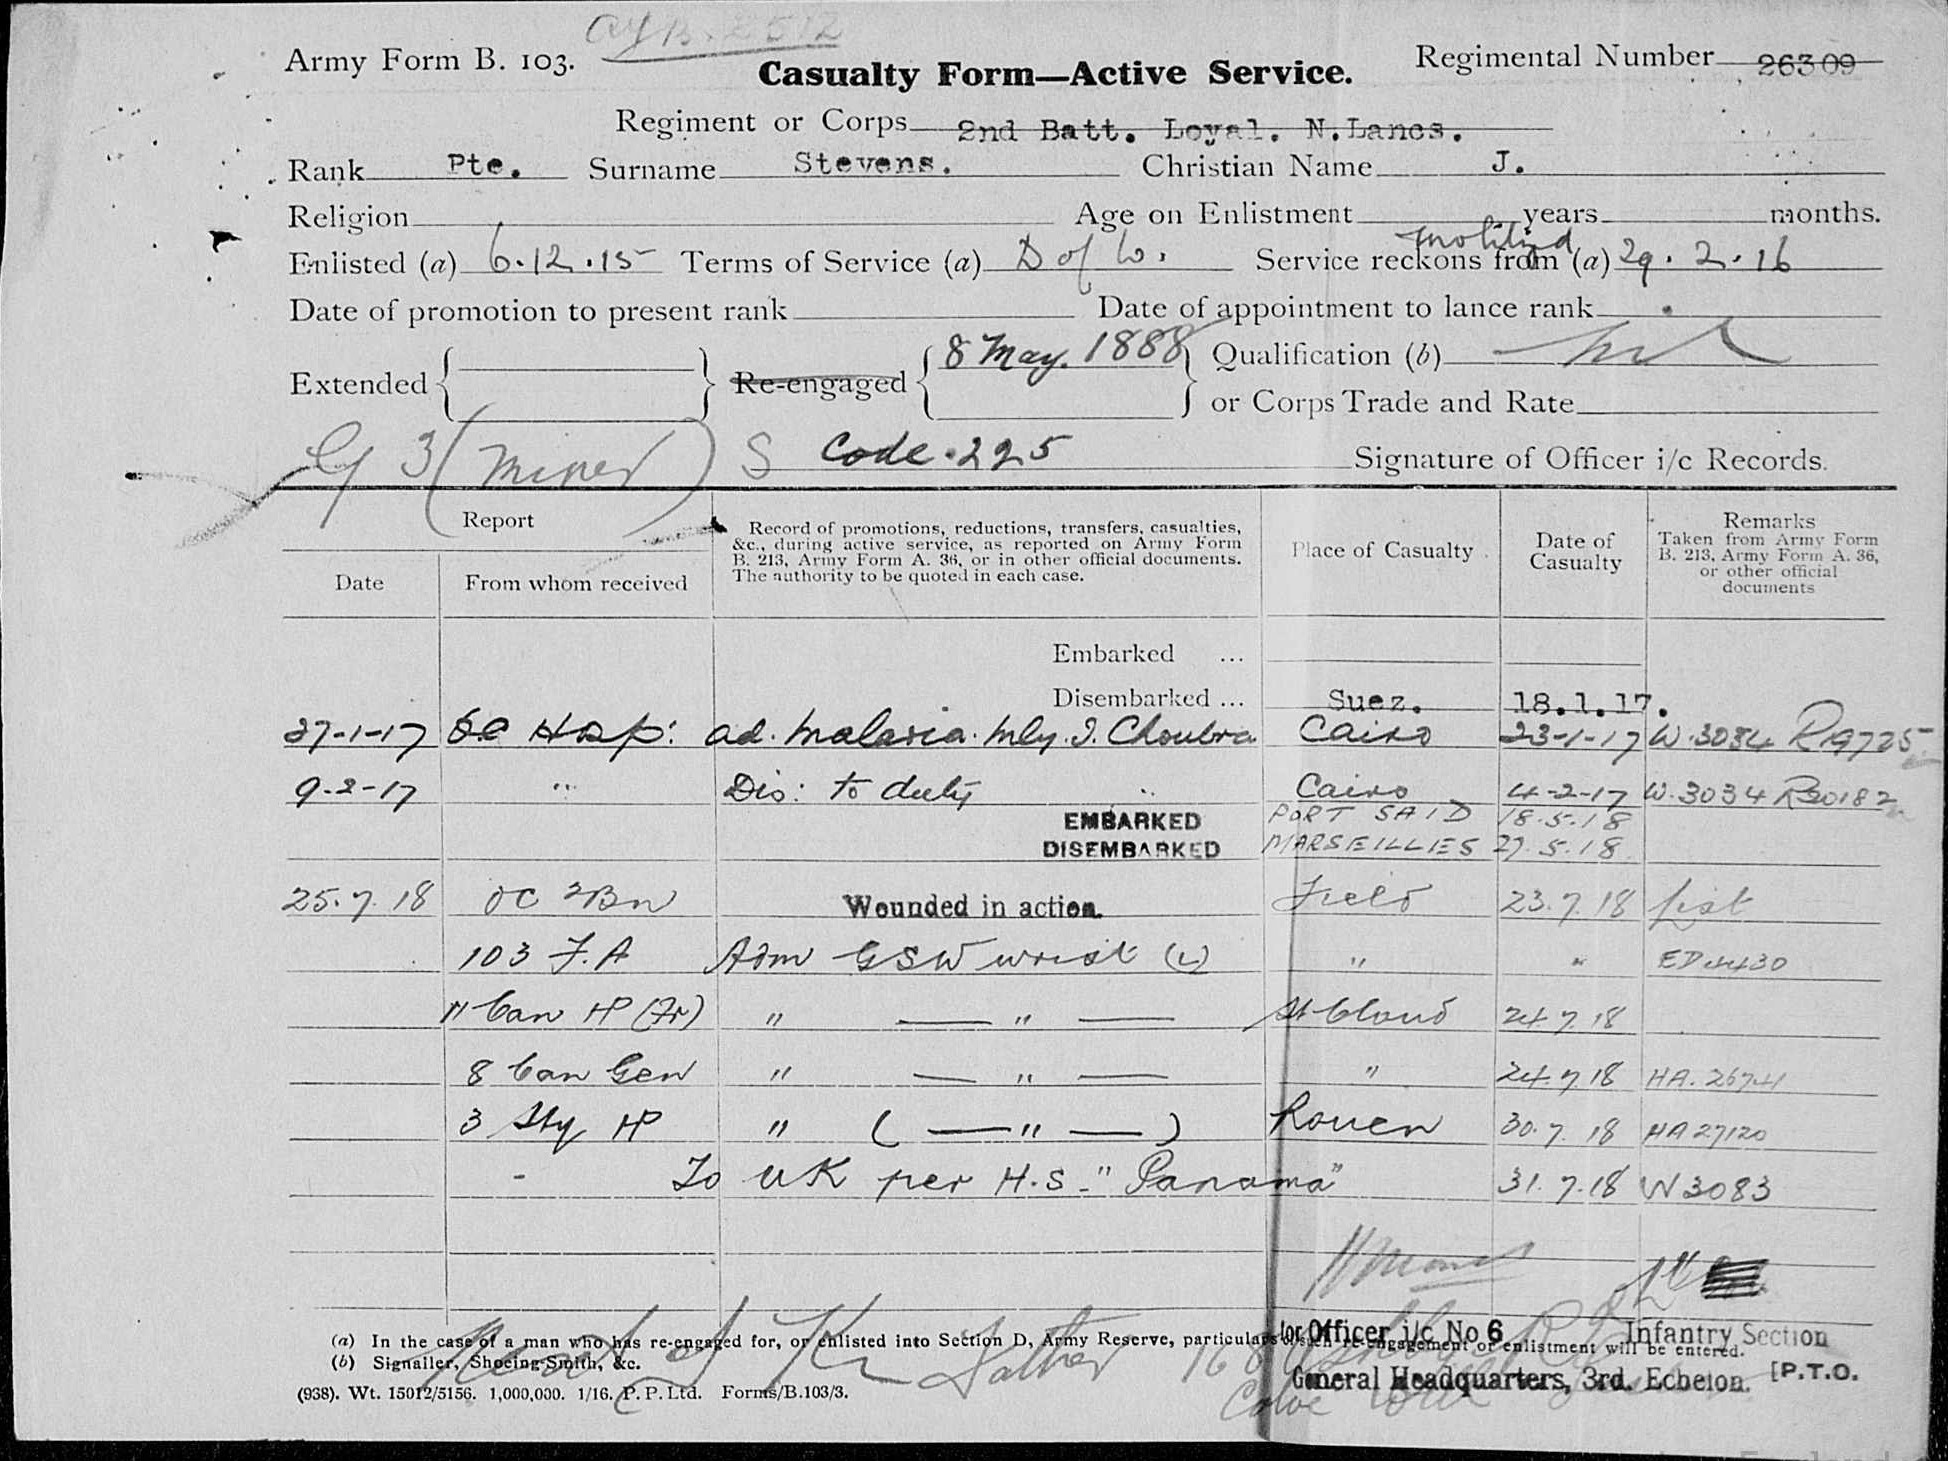 Army Form B. 103.
Casualty Form—Active Service.
Regimental Number 26309
Regiment or Corps 2nd Batt. Loyal. N.Lancs.
Rank Pte. Surname Stevens. Christian Name J.
Religion Age on Enlistment years months.
mobilized
Enlisted (a) 6.12.15 Terms of Service (a) D of W. Service reckons from (a) 29.2.16
Date of promotion to present rank Date of appointment to lance rank
Extended Re-engaged 8 May. 1888 Qualification (b)
or Corps Trade and Rate
3 (Miner) S Code.225 Signature of Officer i/c Records.
Report
Date
From whom received
Record of promotions, reductions, transfers, casualties,
&c., during active service, as reported on Army Form
B. 213, Army Form A. 36, or in other official documents.
The authority to be quoted in each case.
Place of Casualty
Date of
Casualty
Remarks
Taken from Army Form
B. 213, Army Form A. 36,
or other official
documents
Embarked ...
Disembarked ... Suez. 18.1.17.
27-1-17 Hosp: ad. Malaria. Mly. I. Choubra Cairo 23-1-17 W.3034 R19725
9-2-17 " Dis: to duty " Cairo 4-2-17 W.3034 R20182
EMBARKED PORT SAID 18.5.18
DISEMBARKED MARSEILLIES 27.5.18
25.7.18 OC 2Bn Wounded in action. Field 23.7.18
103 F.A Adm GSW wrist (L) " " ED4430
11 Can HP (Fr) " — " — St Cloud 24.7.18
8 Can Gen " — " — " 24.7.18 HA.26741
3 Sty HP " ( — " — ) Rouen 30.7.18 HA27120
- To UK per H.S. "Panama" 31.7.18 W3083
(a) In the case of a man who has re-engaged for, or enlisted into Section D, Army Reserve, particulars of such re-engagement or enlistment will be entered.
(b) Signaller, Shoeing-Smith, &c.
(938). Wt. 15012/5156. 1,000,000. 1/16. P. P. Ltd. Forms/B.103/3.
Father 168
for Officer i/c No 6 Infantry Section
General Headquarters, 3rd. Echelon.
[P.T.O.